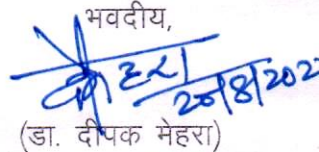 भवदीय,
20/8/202
(डा. दीपक मेहरा)